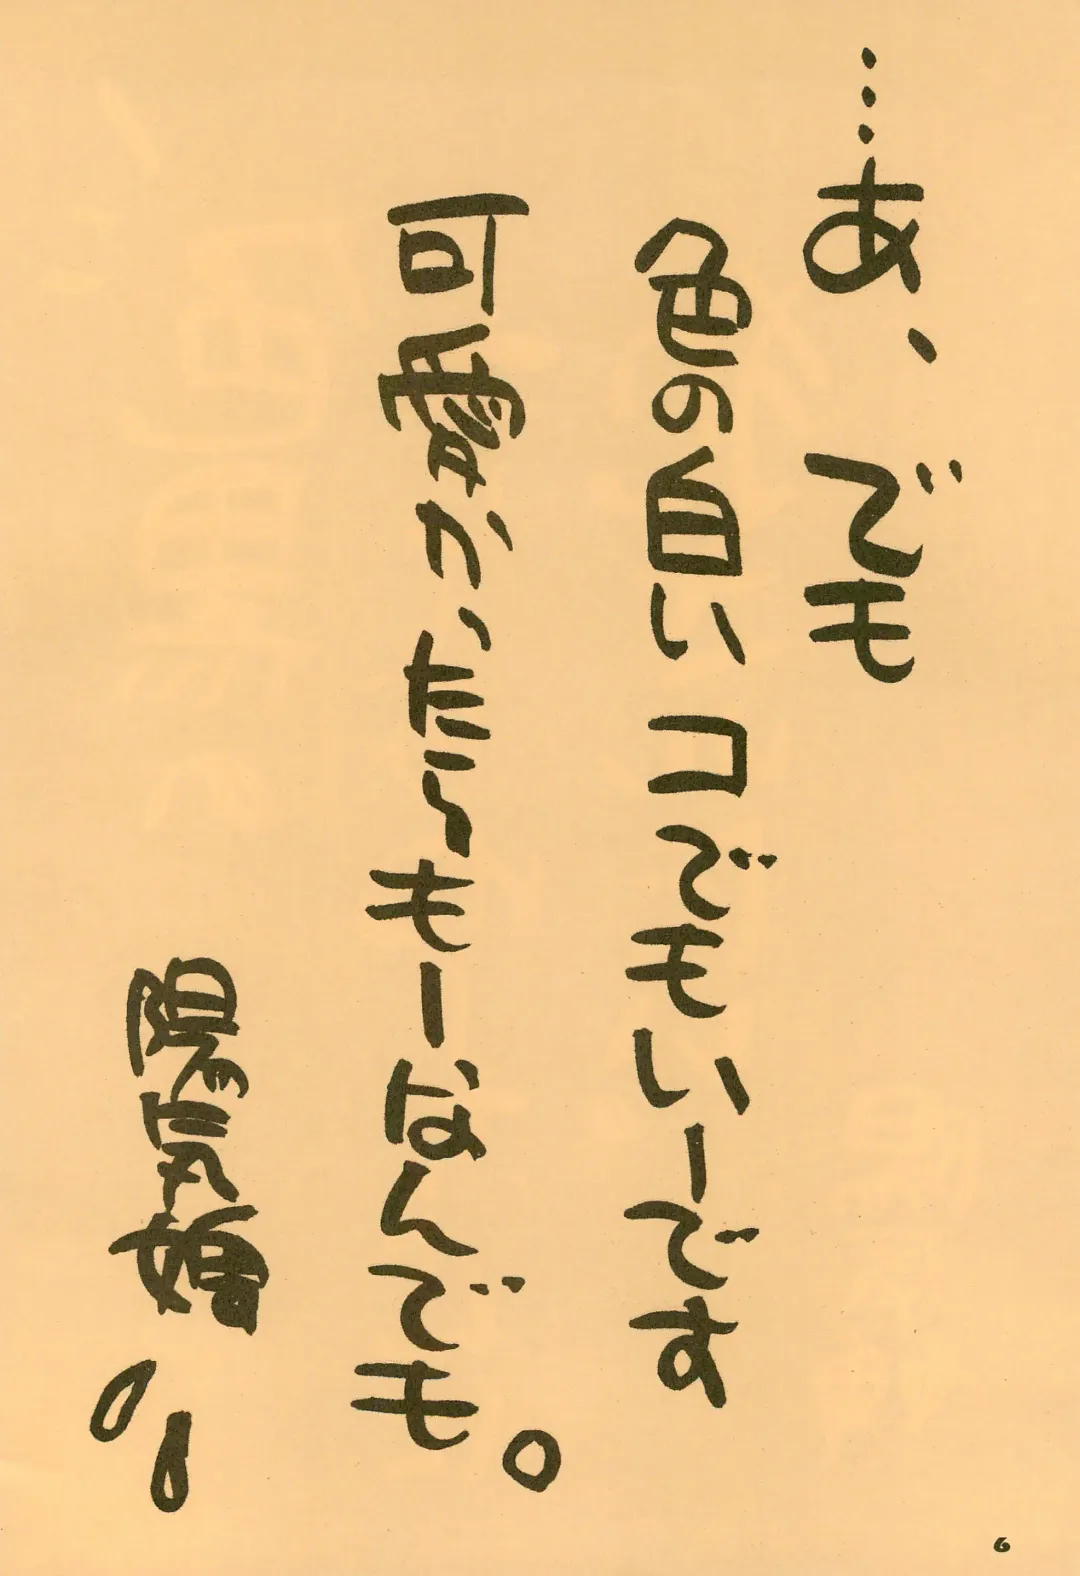 …あ、でも
色の白いコでもいーです
可愛かったらもーなんでも。
陽気婢
6